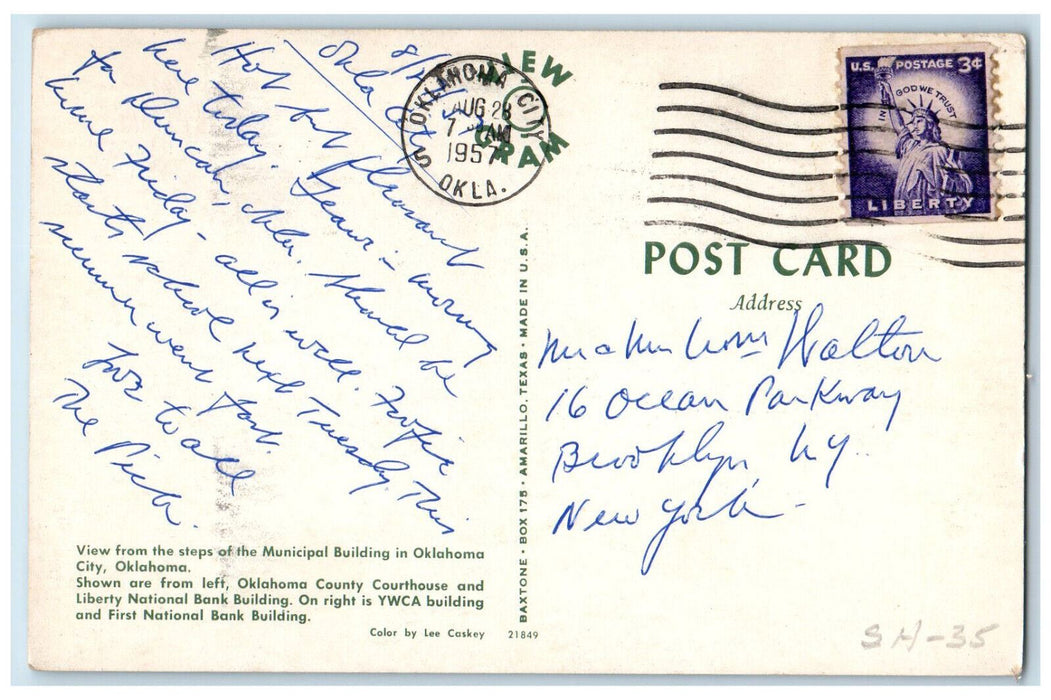 Okla City
Hot but pleasant
here today. morning
for Duncan, Okla. Should be
home Friday - all is well.
starts school next Tuesday. This
summer went fast.
Love to all
The
VIEW
GRAM
OKLAHOMA CITY
AUG 28
7 AM
1957
OKLA.
U.S. POSTAGE 3¢
IN GOD WE TRUST
LIBERTY
POST CARD
Address
Mr & Mrs Wm Walton
16 Ocean Parkway
Brooklyn, NY.
New York -
BAXTONE • BOX 175 • AMARILLO, TEXAS • MADE IN U.S.A.
View from the steps of the Municipal Building in Oklahoma
City, Oklahoma.
Shown are from left, Oklahoma County Courthouse and
Liberty National Bank Building. On right is YWCA building
and First National Bank Building.
Color by Lee Caskey 21849
SH-35